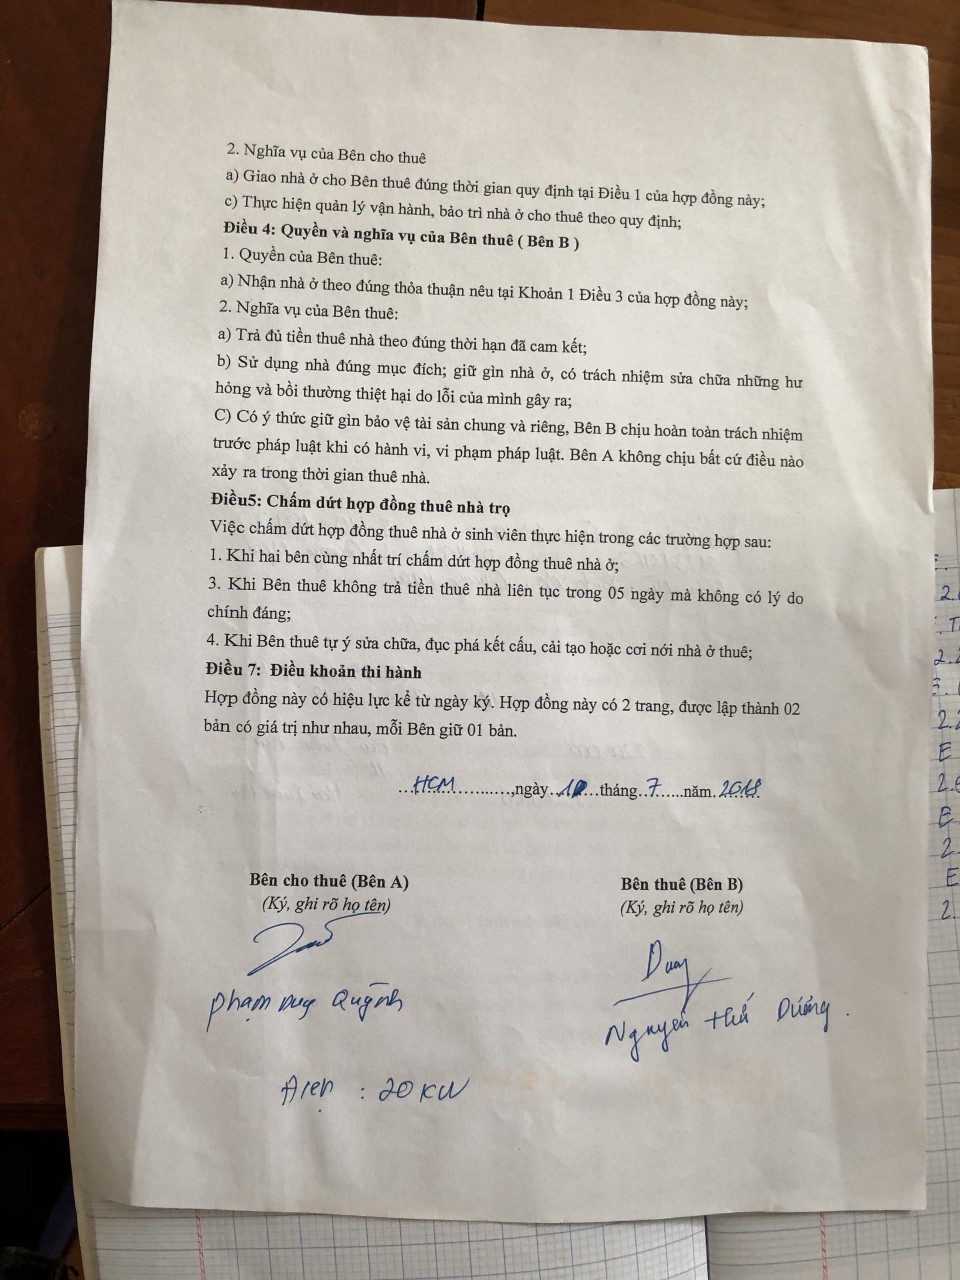 2. Nghĩa vụ của Bên cho thuê
a) Giao nhà ở cho Bên thuê đúng thời gian quy định tại Điều 1 của hợp đồng này;
c) Thực hiện quản lý vận hành, bảo trì nhà ở cho thuê theo quy định;
Điều 4: Quyền và nghĩa vụ của Bên thuê ( Bên B )
1. Quyền của Bên thuê:
a) Nhận nhà ở theo đúng thỏa thuận nêu tại Khoản 1 Điều 3 của hợp đồng này;
2. Nghĩa vụ của Bên thuê:
a) Trả đủ tiền thuê nhà theo đúng thời hạn đã cam kết;
b) Sử dụng nhà đúng mục đích; giữ gìn nhà ở, có trách nhiệm sửa chữa những hư
hỏng và bồi thường thiệt hại do lỗi của mình gây ra;
C) Có ý thức giữ gìn bảo vệ tài sản chung và riêng, Bên B chịu hoàn toàn trách nhiệm
trước pháp luật khi có hành vi, vi phạm pháp luật. Bên A không chịu bất cứ điều nào
xảy ra trong thời gian thuê nhà.
Điều5: Chấm dứt hợp đồng thuê nhà trọ
Việc chấm dứt hợp đồng thuê nhà ở sinh viên thực hiện trong các trường hợp sau:
1. Khi hai bên cùng nhất trí chấm dứt hợp đồng thuê nhà ở;
3. Khi Bên thuê không trả tiền thuê nhà liên tục trong 05 ngày mà không có lý do
chính đáng;
4. Khi Bên thuê tự ý sửa chữa, đục phá kết cấu, cải tạo hoặc cơi nới nhà ở thuê;
Điều 7: Điều khoản thi hành
Hợp đồng này có hiệu lực kể từ ngày ký. Hợp đồng này có 2 trang, được lập thành 02
bản có giá trị như nhau, mỗi Bên giữ 01 bản.
HCM, ngày tháng 7 năm 2018
Bên cho thuê (Bên A) Bên thuê (Bên B)
(Ký, ghi rõ họ tên) (Ký, ghi rõ họ tên)
Phạm Duy Quỳnh
Nguyễn Dương.
: 20 KW